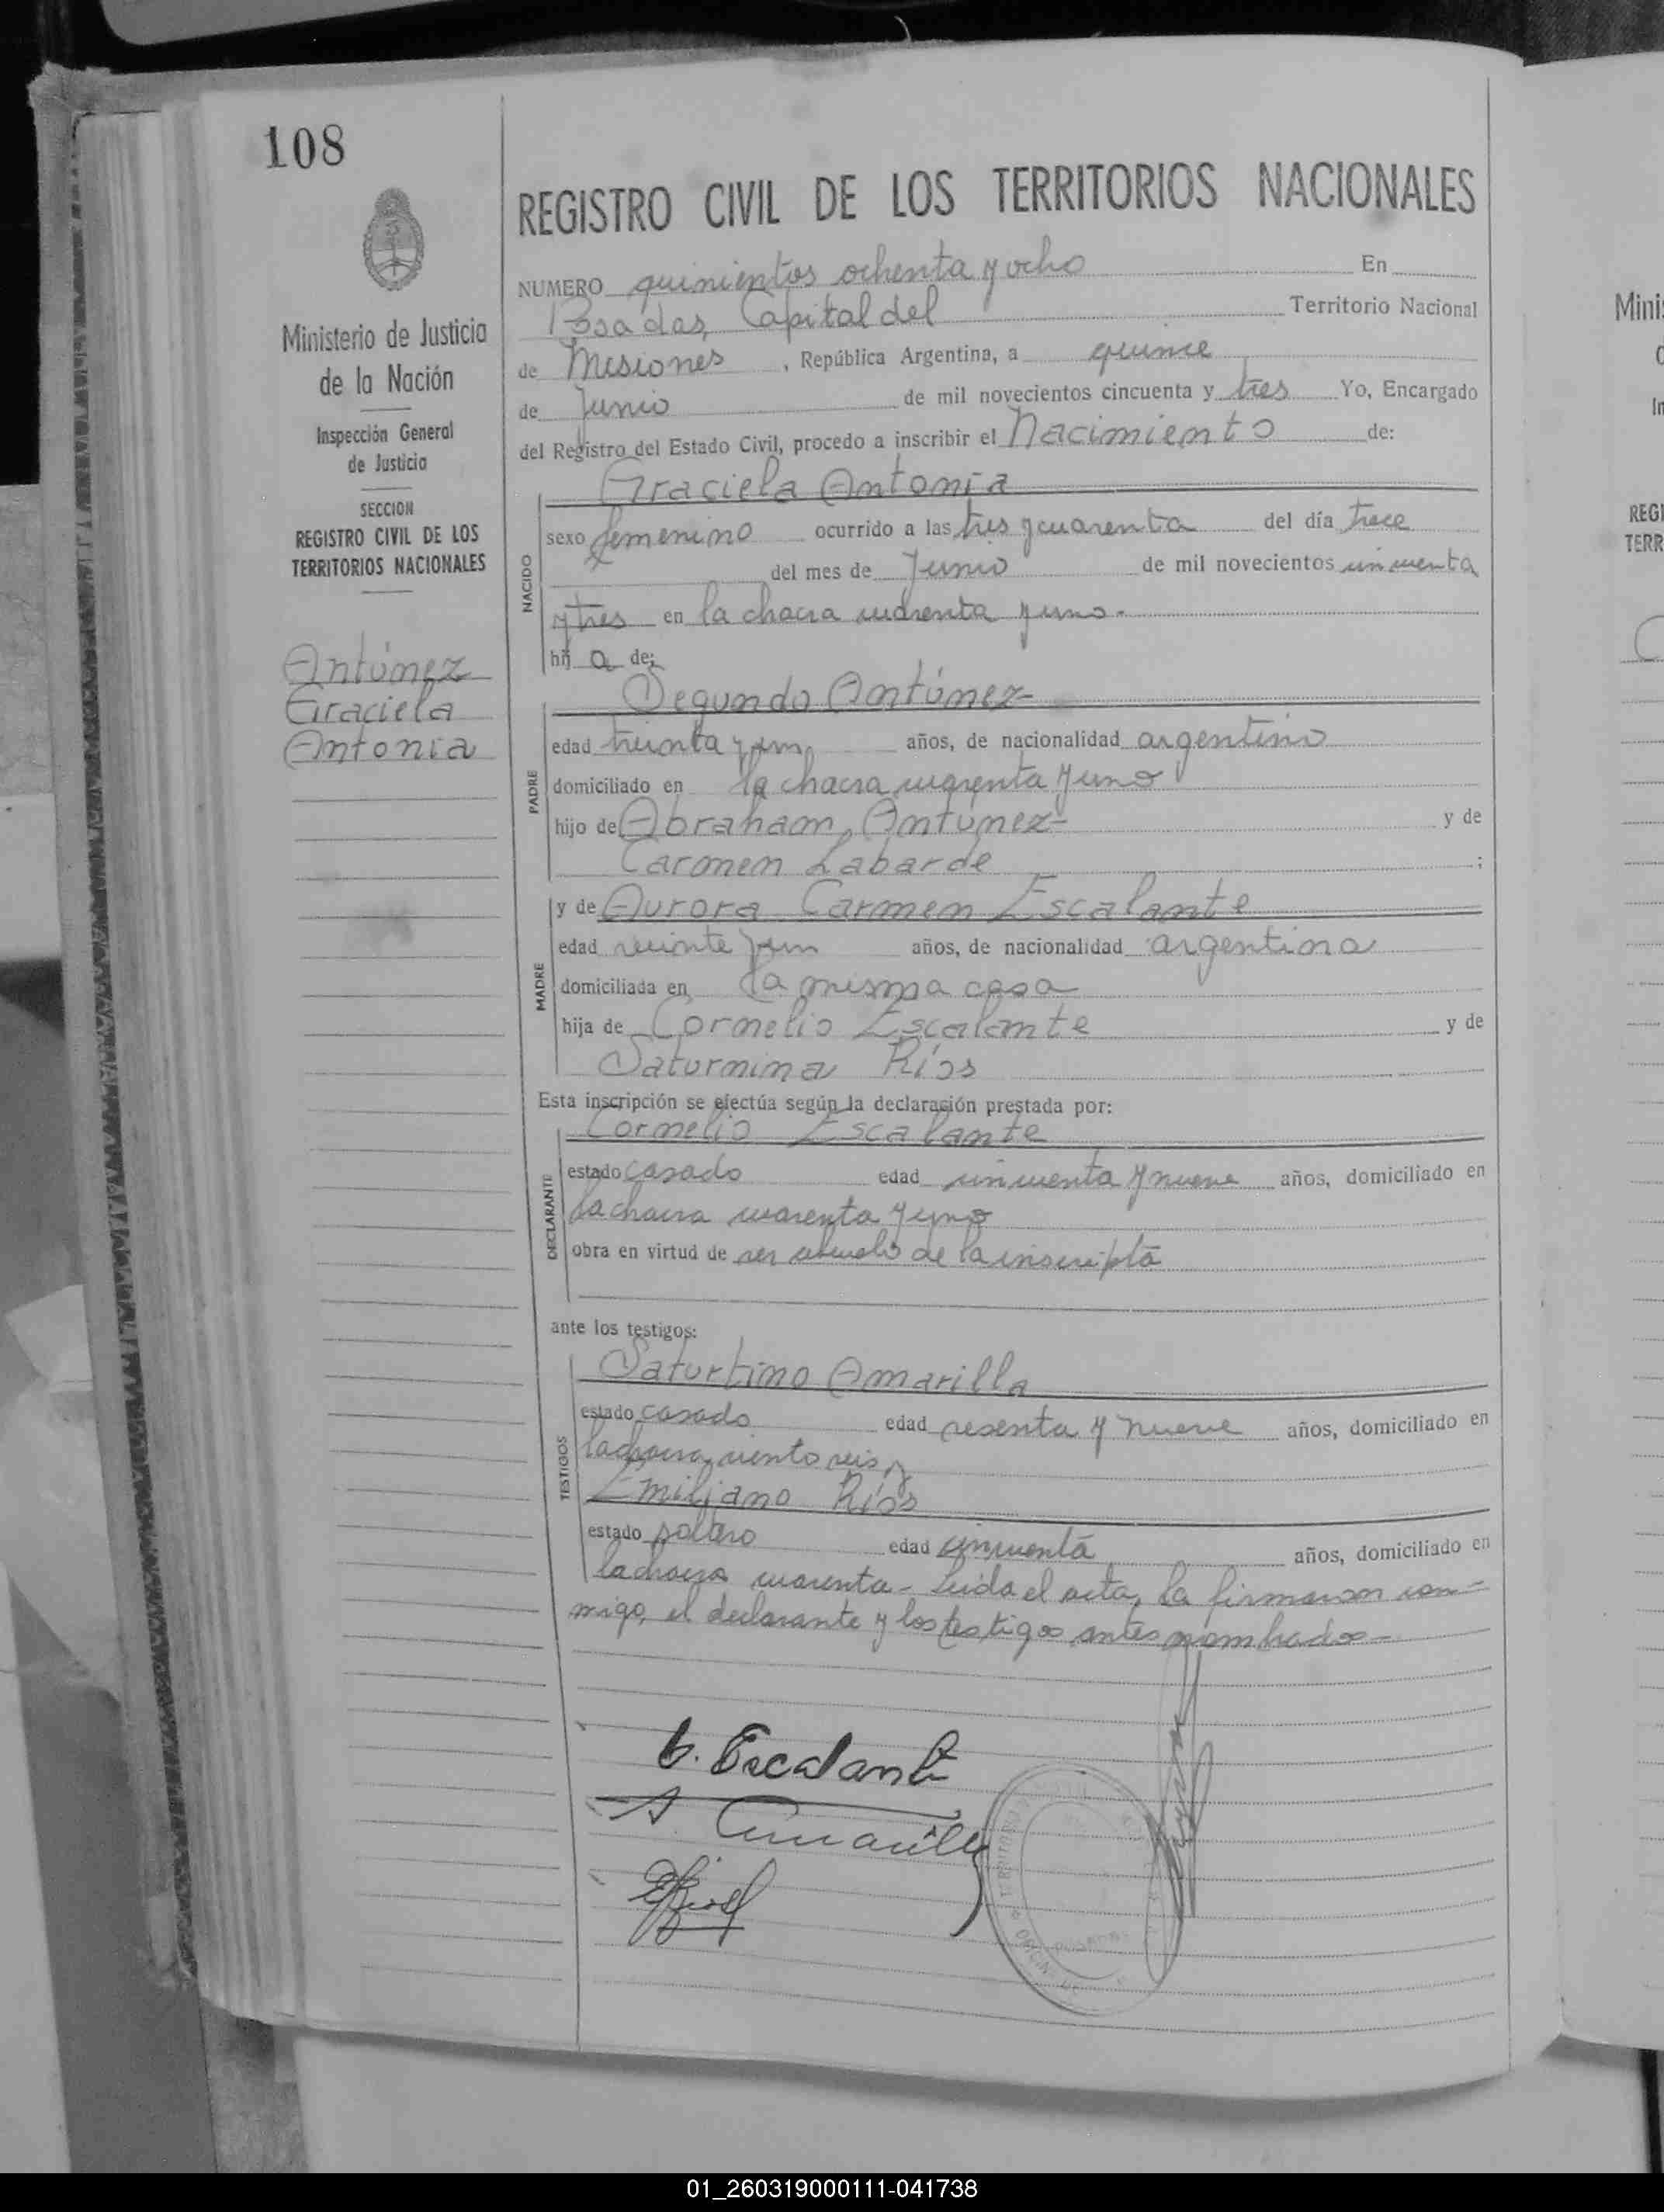 108
Ministerio de Justicia
de la Nación
Inspección General
de Justicia
SECCION
REGISTRO CIVIL DE LOS
TERRITORIOS NACIONALES
Antúnez
Graciela
Antonia
REGISTRO CIVIL DE LOS TERRITORIOS NACIONALES
NUMERO quinientos ochenta y ocho En
Posadas, Capital del Territorio Nacional
de Misiones, República Argentina, a quince
de Junio de mil novecientos cincuenta y tres Yo, Encargado
del Registro del Estado Civil, procedo a inscribir el Nacimiento de:
Graciela Antonia
NACIDO
sexo femenino ocurrido a las tres y cuarenta del día trece
del mes de Junio de mil novecientos cincuenta
y tres en la chacra cuarenta y uno.-
hij a de:
Segundo Antúnez
PADRE
edad treinta y un años, de nacionalidad argentino
domiciliado en la chacra cuarenta y uno
hijo de Abraham Antunez y de
Carmen Labarde ;
y de Aurora Carmen Escalante
MADRE
edad veinte y un años, de nacionalidad argentina
domiciliada en la misma casa
hija de Cornelio Escalante y de
Saturnina Ríos
Esta inscripción se efectúa según la declaración prestada por:
Cornelio Escalante
DECLARANTE
estado casado edad cincuenta y nueve años, domiciliado en
la chacra cuarenta y uno
obra en virtud de ser abuelo de la inscripta
ante los testigos:
Saturtino Amarilla
TESTIGOS
estado casado edad sesenta y nueve años, domiciliado en
la chacra ciento seis y
Emiliano Ríos
estado soltero edad cincuenta años, domiciliado en
la chacra cuarenta - Leida el acta, la firmaron con-
migo, el declarante y los testigos antes nombrados-
C. Escalante
S. Amarilla
E Rios
POSADAS
Mini
REGI
TERR
01_260319000111-041738